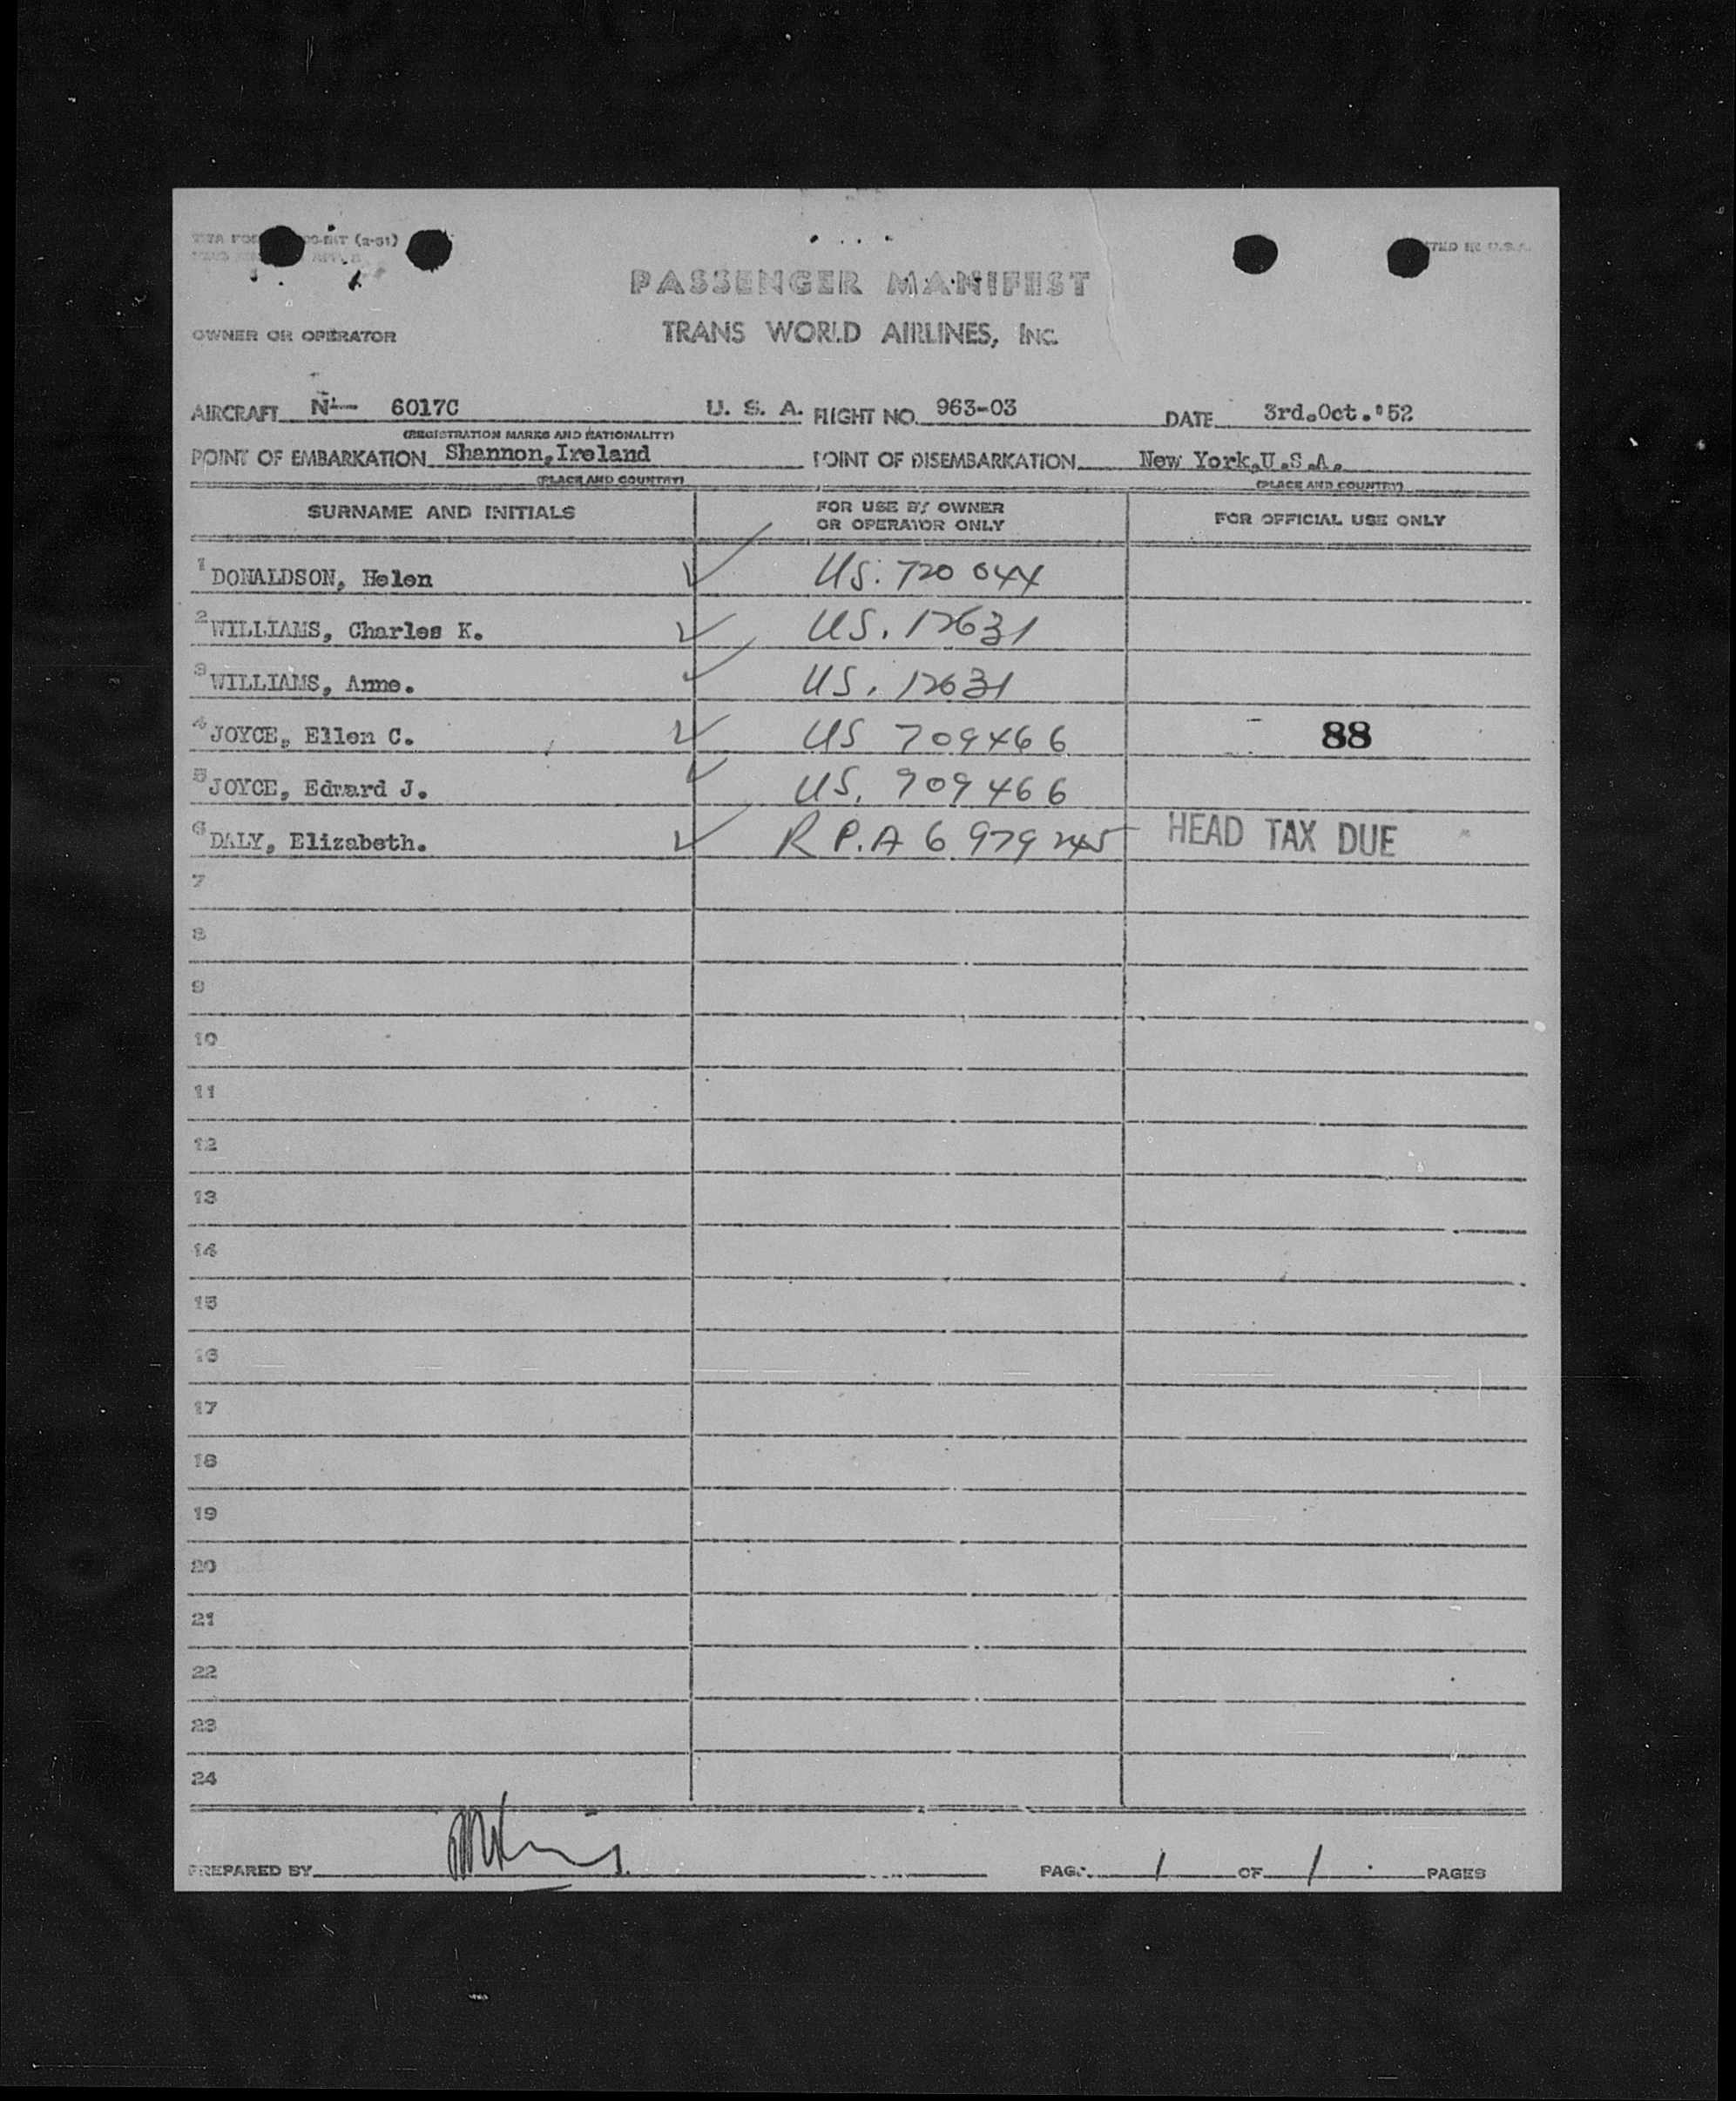 PASSENGER MANIFEST
OWNER OR OPERATOR TRANS WORLD AIRLINES, INC.
AIRCRAFT N- 6017C U. S. A. FLIGHT NO. 963-03 DATE 3rd.Oct.'52
(REGISTRATION MARKS AND NATIONALITY)
POINT OF EMBARKATION Shannon,Ireland POINT OF DISEMBARKATION New York,U.S.A.
(PLACE AND COUNTRY) (PLACE AND COUNTRY)
SURNAME AND INITIALS FOR USE BY OWNER OR OPERATOR ONLY FOR OFFICIAL USE ONLY
1 DONALDSON, Helen US. 720 044
2 WILLIAMS, Charles K. US. 12631
3 WILLIAMS, Anne. US. 12631
4 JOYCE, Ellen C. US 709466 88
5 JOYCE, Edward J. US. 909466
6 DALY, Elizabeth. R P.A 6 979 245 HEAD TAX DUE
7
8
9
10
11
12
13
14
15
16
17
18
19
20
21
22
23
24
PREPARED BY PAGE 1 OF 1 PAGES